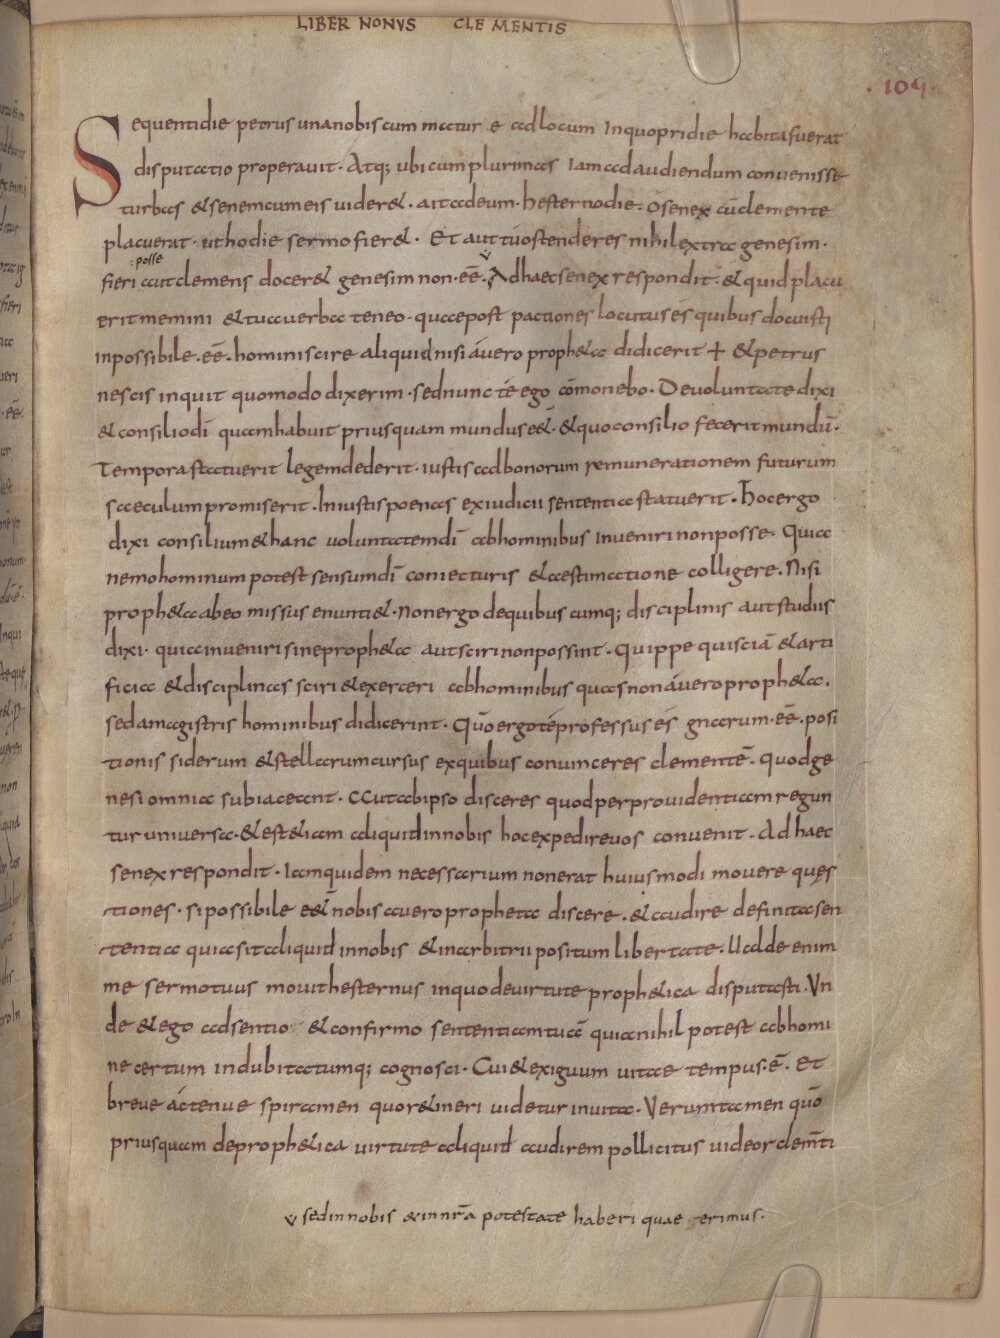 LIBER NONVS CLEMENTIS
· 109 ·
Sequentidie petrus unanobiscum matur e adlocum Inquopridie habitafuerat
disputatio properauit · Atq; ubicumplurimas Iamadaudiendum conuenisse
turbas &senemcumeis uider& · aitadeum · hesternodie · Osenex cũclemente
placuerat · uthodie sermofier& · Et auttúostenderes nihilextra genesim ·
: posse
fieri autclemens docer& genesim non · eē · Adhaecsenex respondit · &quidplacu
eritmemini &tuauerba teneo · quaepost pactiones locutusés quibus docuisti
inpossibile · eē · hominiscire aliquidnisi áuero proph&a didicerit + &petrus
nescis inquit quomodo dixerim · sednunc té ego cōmonebo · Deuoluntatedixi
&consiliodī quamhabuit priusquam mundus eē& · &quoconsilio fecerit mundū ·
Tempora statuerit legemdederit · iustis adbonorum remunerationem futurum
saeculumpromiserit · Iniustispoenas exiudicii sententia statuerit · Hocergo
dixi consilium&hanc uoluntatemdī abhominibus inuenirinonposse · Quia
nemohominum potest sensumdī coniecturis &aestimatione colligere · Nisi
proph&aabeo missus enunti& · Nonergo dequibus cumq; disciplinis aut studiis
dixi · quiainuenirisineproph&a autscirinonpossint · Quippe quisciā &arti
ficia &disciplinas sciri &exerceri abhominibus quasnonáueroproph&a ·
sedamagistris hominibus didicerint · Qūoergotéprofessus és gnarum · eē · posi
tionis siderum &stellarumcursus exquibus conuinceres clementē · quodge
nesi omnia subiaceant · Autabipso disceres quodperprouidentiamregun
tur uniuersa · &est&iam aliquidinnobis hocexpedireuos conuenit · Ad haec
senexrespondit · Iamquidem necessarium nonerat huiusmodi mouere quęs
tiones · sipossibile eē& nobis auero propheta discere · &audire definitasen
tentia quiasitaliquid innobis &inarbitrii positum libertate · Ualde enim
me sermotuus mouithesternus inquodeuirtute proph&ica disputasti · Vn
de &ego adsentio &confirmo sententiamtuā quianihil potest abhomi
ne certum indubitatumq; cognosci · Cui&exiguum uitae tempus · ē · Et
breue áctenue spiramen quor&ineri uidetur inuita · Verumtamen qūo
priusquam deproph&ica uirtute aliquid audirem pollicitus uideor clemēti
sedinnobis &innrā potestate haberi quae gerimus ·